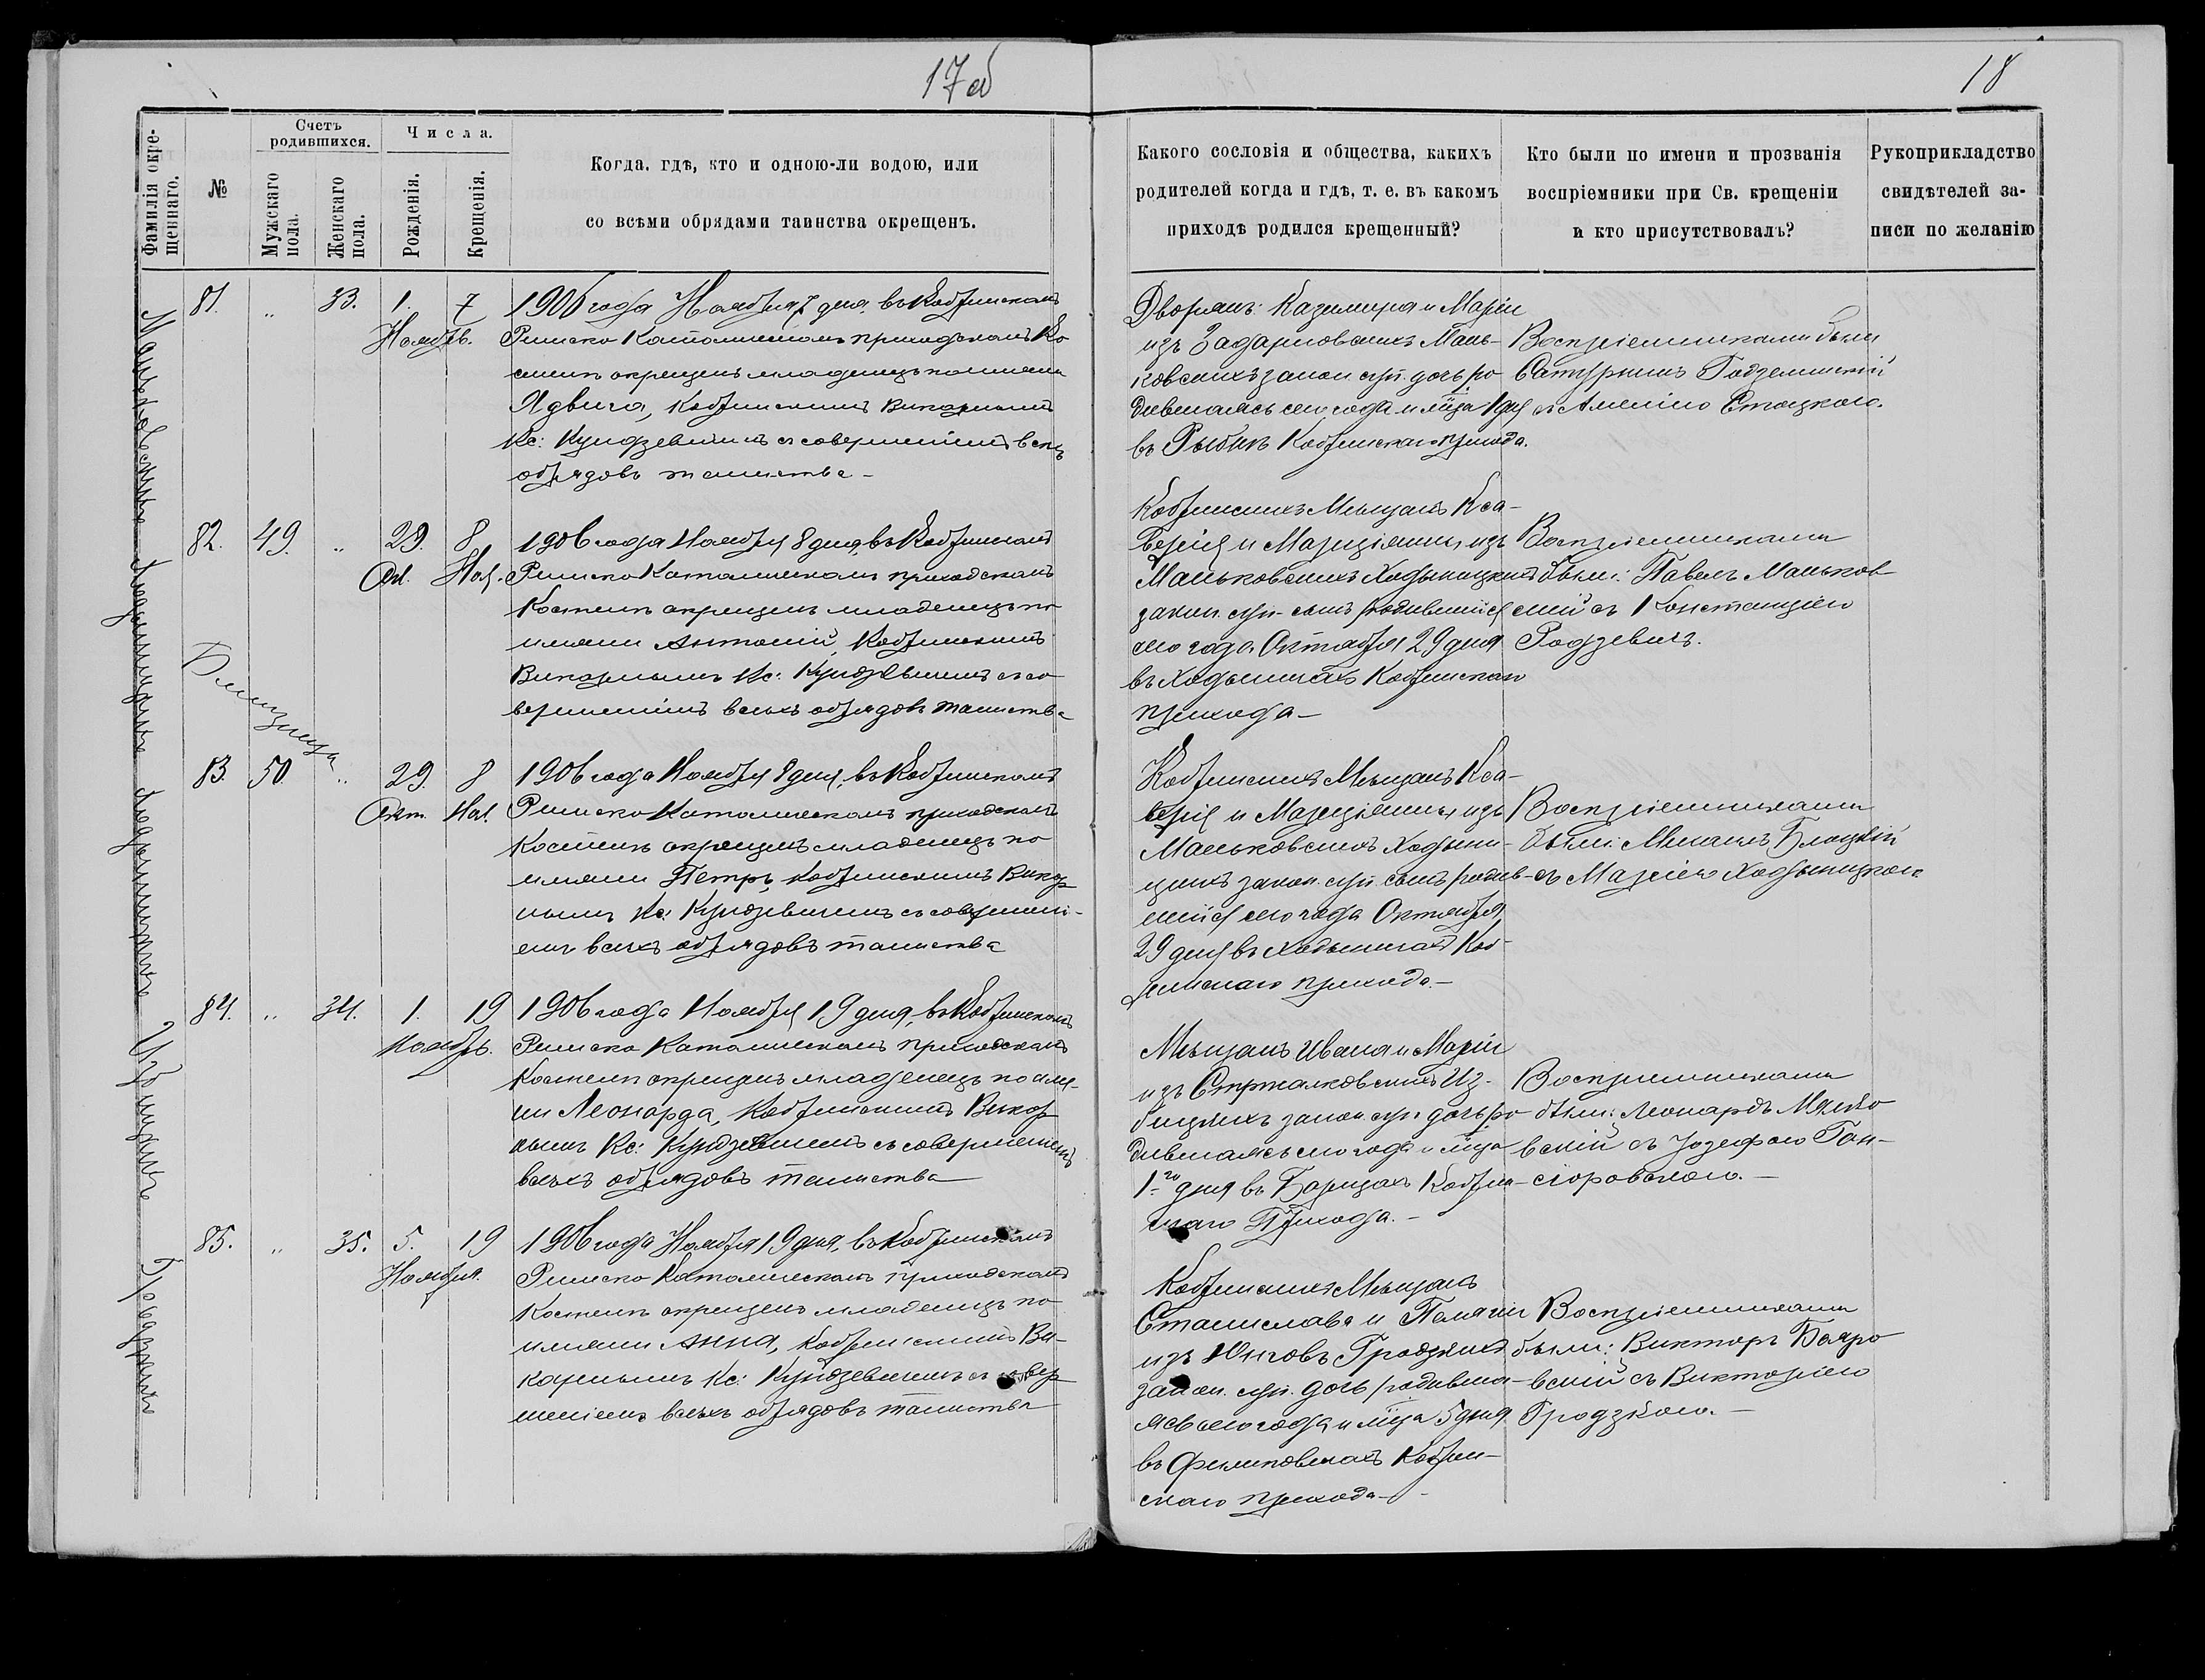 17об
18
Фамилія окре-
щеннаго.
№
Счетъ
родившихся.
Мужскаго
пола.
Женскаго
пола.
Числа.
Рожденія.
Крещенія.
Когда, гдѣ, кто и одною-ли водою, или
со всѣми обрядами таинства окрещенъ.
Какого сословія и общества, какихъ
родителей когда и гдѣ, т. е. въ какомъ
приходѣ родился крещенный?
Кто были по имени и прозванія
воспріемники при Св. крещеніи
и кто присутствовалъ?
Рукоприкладство
свидѣтелей за-
писи по желанію
Маньковскихъ
81. „ 33. 1. 7
Ноября.
1906 года Ноября 7 дня, въ Кобринскомъ
Римско Католическомъ приходскомъ Ко
стелѣ окрещенъ младенецъ по имени
Ядвига, Кобринскимъ Викарнымъ
Кс: Кундзевичемъ съ совершеніемъ всѣхъ
обрядовъ таинства –
Дворянъ: Казимира и Маріи
изъ Задарновскихъ Мань-
ковскихъ закон. суп. дочь ро
дившаяся сего года и мца 1 дня
въ Рыбнѣ Кобринскаго прихода.
Воспріемниками были
Сатурнинъ Годземинскій
съ Амеліею Стоцкою.
Ходыницкихъ
82. 49. „ 29. 8
Окт. Ноя.
1906 года Ноября 8 дня, въ Кобринскомъ
Римско Католическомъ приходскомъ
Костелѣ окрещенъ младенецъ по
имени Антоній, Кобринскимъ
Викарнымъ Кс: Кундзевичемъ съ со
вершеніемъ всѣхъ обрядовъ таинства
Кобринскихъ Мѣщанъ Кса-
верія и Марціянны изъ
Маньковскихъ Ходыницкихъ
закон. суп. сынъ родившійся
сего года Октября 29 дня
въ Ходыничахъ Кобринскаго
прихода –
Воспріемниками
были: Павелъ Маньков
скій съ Констанціею
Родзевичъ.
Близнецы
Ходыницкихъ
83. 50. „ 29. 8
Окт. Ноя.
1906 года Ноября 8 дня, въ Кобринскомъ
Римско Католическомъ приходскомъ
Костелѣ окрещенъ младенецъ по
имени Петръ, Кобринскимъ Викар
нымъ Кс: Кундзевичемъ съ совершені-
емъ всѣхъ обрядовъ таинства
Кобринскихъ Мѣщанъ Кса-
верія и Марціянны изъ
Маньковскихъ Ходыни-
цкихъ закон. суп. сынъ родив-
шійся сего года Октября
29 дня въ Ходыничахъ Коб-
ринскаго прихода. –
Воспріемниками
были Михаилъ
съ Маріею Ходыницкою
Избицкихъ
84. „ 34. 1. 19
Ноябрь.
1906 года Ноября 19 дня, въ Кобринскомъ
Римско Католическомъ приходскомъ
Костелѣ окрещенъ младенецъ по име-
ни Леонарда, Кобринскимъ Викар
нымъ Кс: Кундзевичемъ съ совершеніемъ
всѣхъ обрядовъ таинства
Мѣщанъ Ивана и Маріи
изъ Стржалковскихъ Из-
бицкихъ закон суп дочь ро
дившаяся сего года и мца
1-го дня въ Борщахъ Кобрин-
скаго Прихода. –
Воспріемниками
были: Леонардъ
вскій съ Юзефою Ган-
сіоровскою. –
Гродзкихъ
85. „ 35. 5. 19
Ноября.
1906 года Ноября 19 дня, въ Кобринскомъ
Римско Католическомъ приходскомъ
Костелѣ окрещенъ младенецъ по
имени Анна, Кобринскимъ Ви-
карнымъ Кс: Кундзевичемъ съ совер
шеніемъ всѣхъ обрядовъ таинства
Кобринскихъ Мѣщанъ
Станислава и Пелагіи
изъ Юнговъ Гродзкихъ
закон. суп. дочь родивша-
яся сего года и мца 5 дня
въ Филиповичахъ Кобрин-
скаго прихода –
Воспріемниками
были: Викторъ Бояро
вскій съ Викторіею
Гродзкою. –